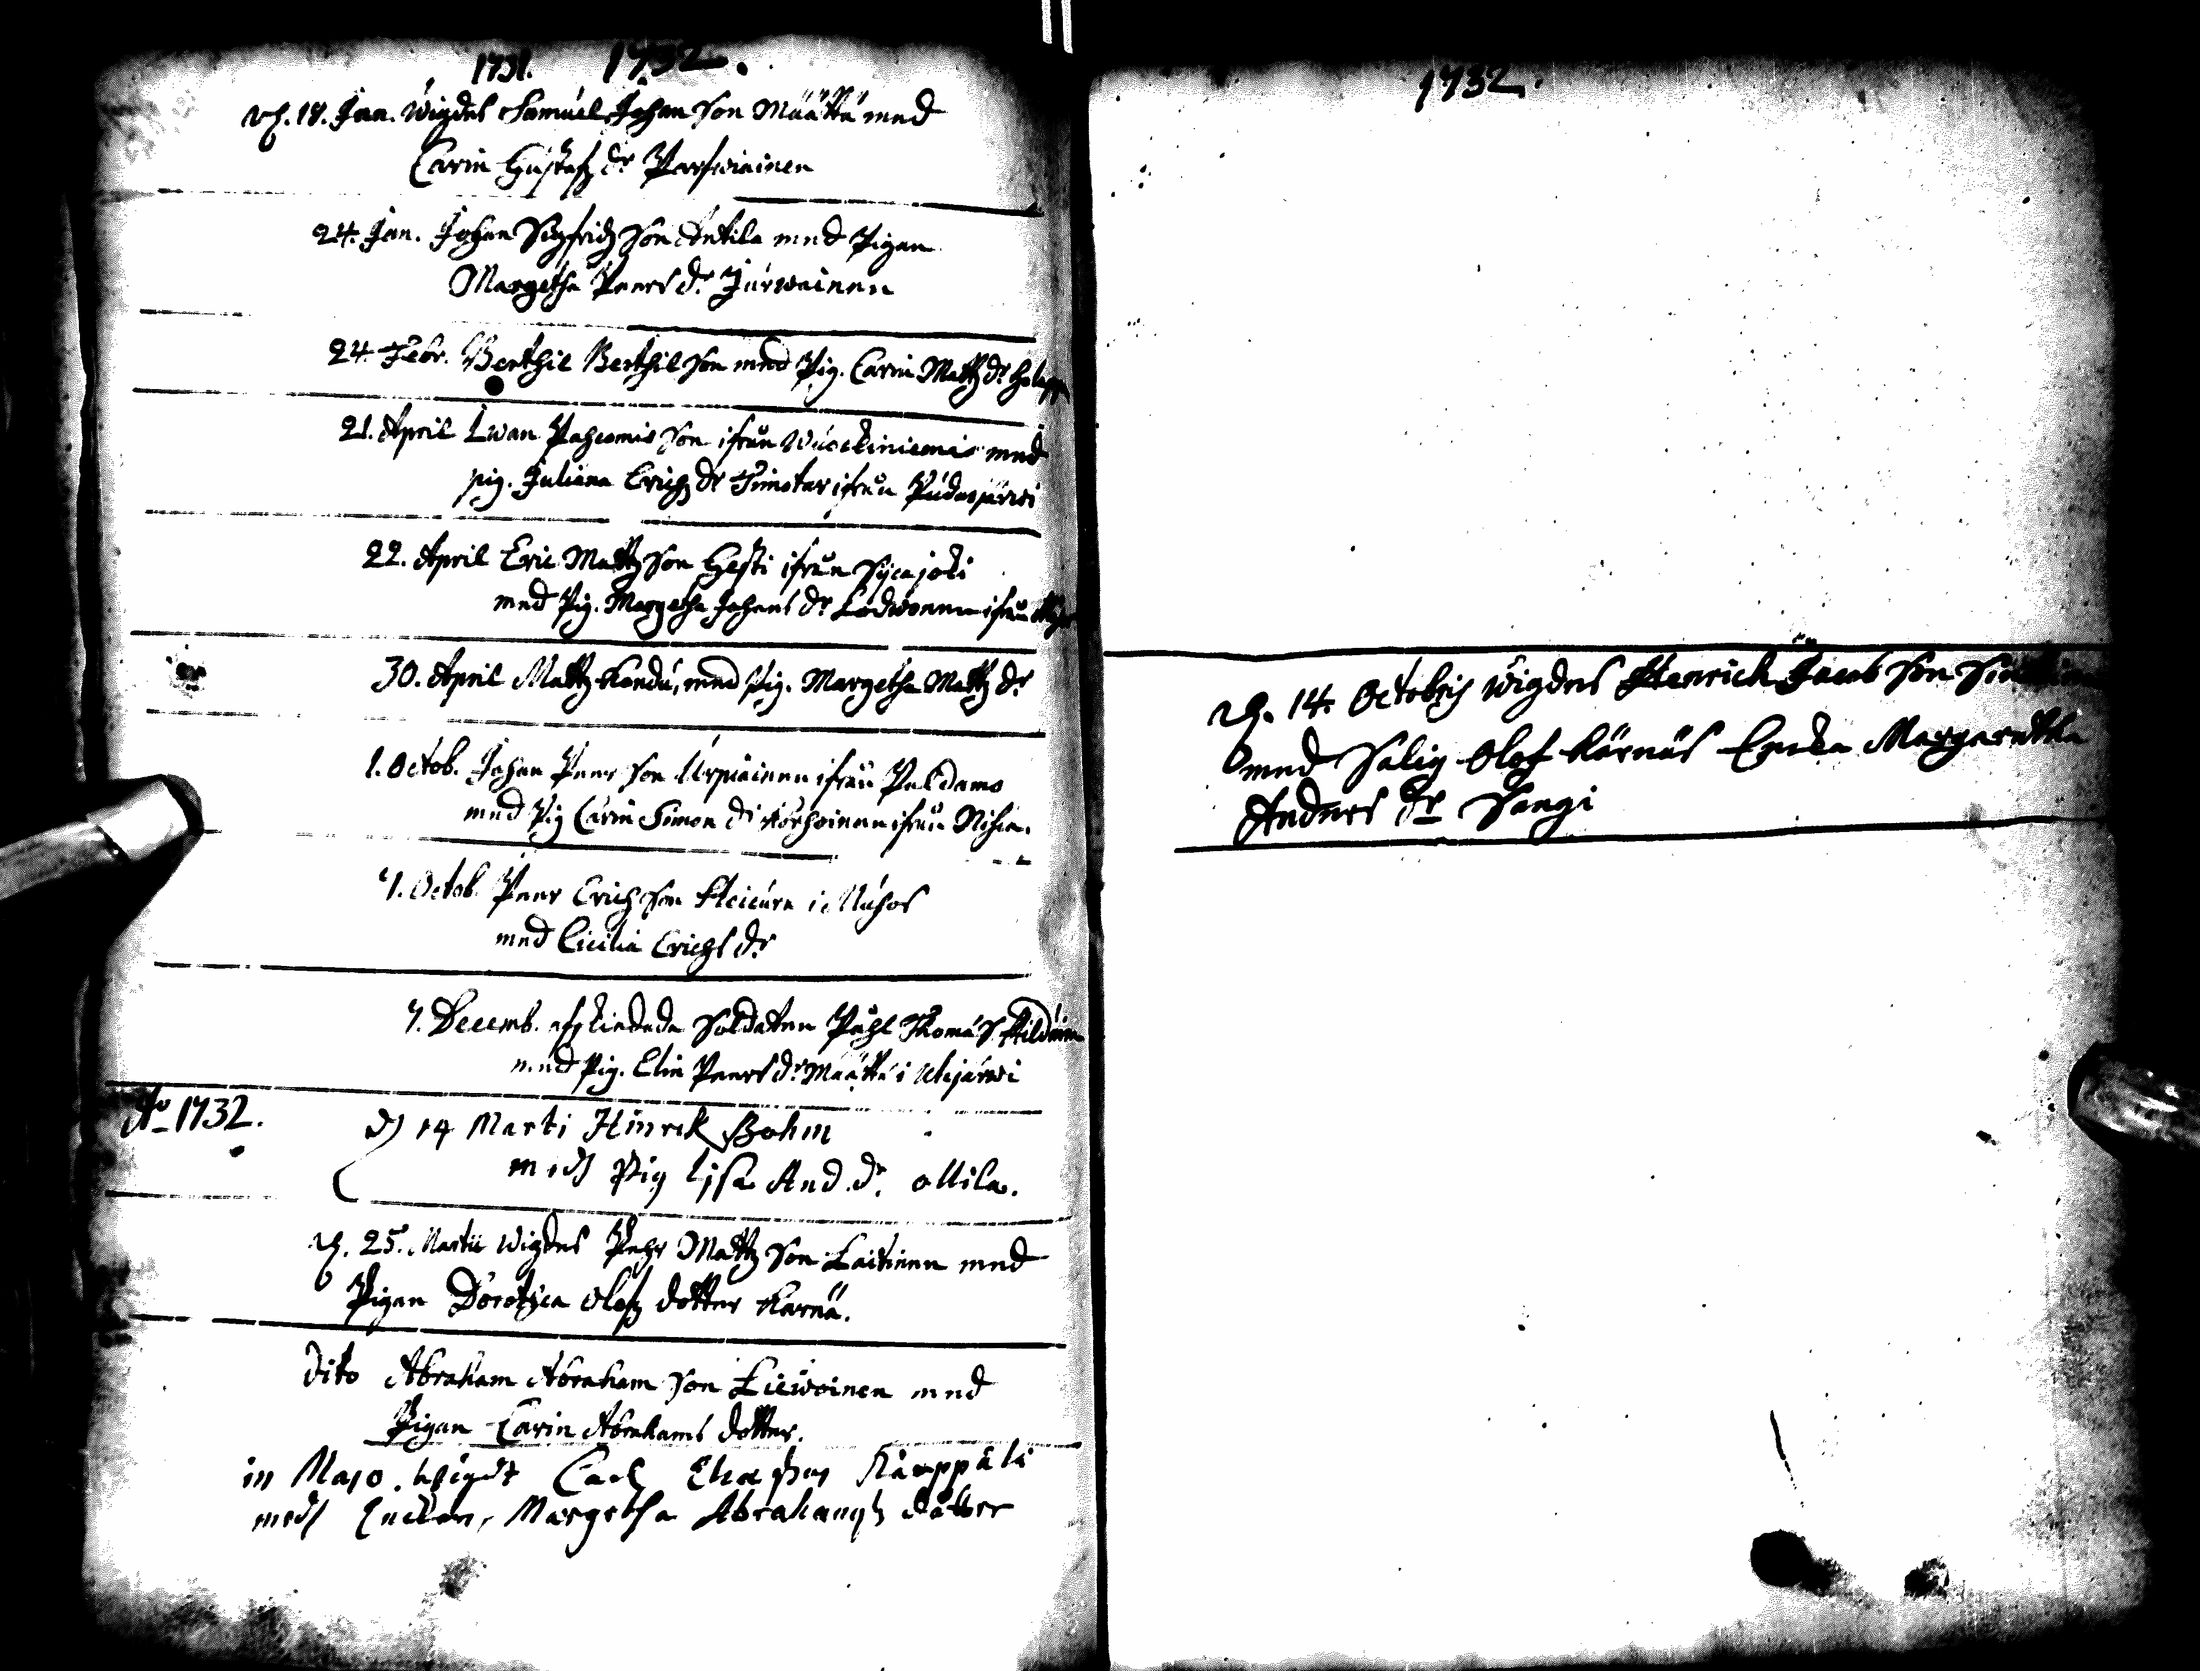 1731. 1732.
d. 17. Jan. wigdes Samuel Johan Son Määttä med
Carin Gustafz dr Parfwiainen
24. Jan. Johan Sigfridz Son Antila med Pigan
Margetha Peers dr Järwäinen
24. Febr. Berthil Berthil Son med Pig. Carin Mattz dr Holapp
21. April Iwan Pahcomis Son ifrån Wuockiniemis med
pig. Juliana Erichz dr Timotar ifrån Pudasjärwi
22. April Eric Mattz Son Hesti ifrån Sijcajoki
med Pig. Margetha Johans dr Lodwonen ifrån
30. April Mattz Kondu, med Pig. Margetha Mattz dr
1. Octob. Johan Peer Son Urpiäinen ifrån Paldamo
med Pig Carin Simon dr Korhoinen ifrån Nisia.
7. Octob. Peer Erichz Son Heicura i Muhos
med Cicilia Erichs dr
7. Decemb. afskiedade Soldaten Påhl Thoma S.
med Pig. Elin Peers dr Määttä i Utajärwi
Ao 1732. d 14 Marti Hinrck Bohm
med Pig Lisa And. dr. ollila.
d. 25. Martii wigdes Pehr Mattz Son Laitinen med
Pigan Dorothea Olofz dotter Karnä.
dito Abraham Abraham Son Liewoinen med
Pigan Carin Abrahams dotter.
in Majo. wigdt Carl Kärppälä
med Enckan, Margetha Abrahamsz dåtter
1732.
d. 14. Octobris wigdes Henrich Jacob Son
med Salig Olof Kärnäs Encka Margaretha
Anders dr Sangi